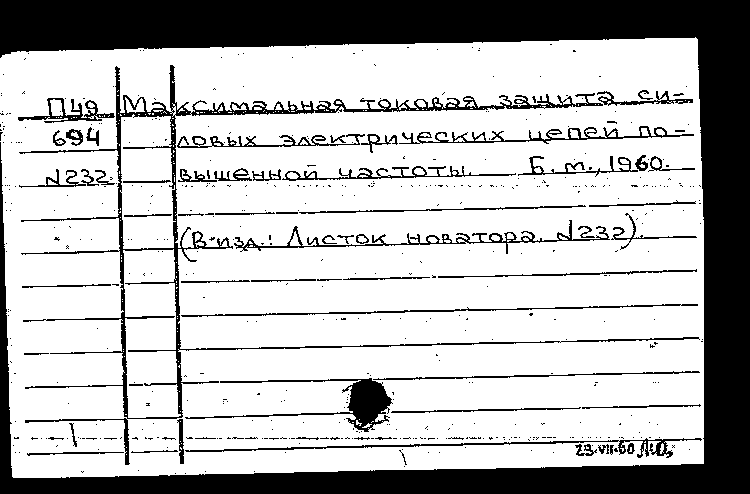 П49 Максимальная токовая защита си-
694 ловых электрических цепей по-
№232. вышенной частоты. Б.м., 1960.
(В изд.: Листок новатора. №232).
23.VII.60